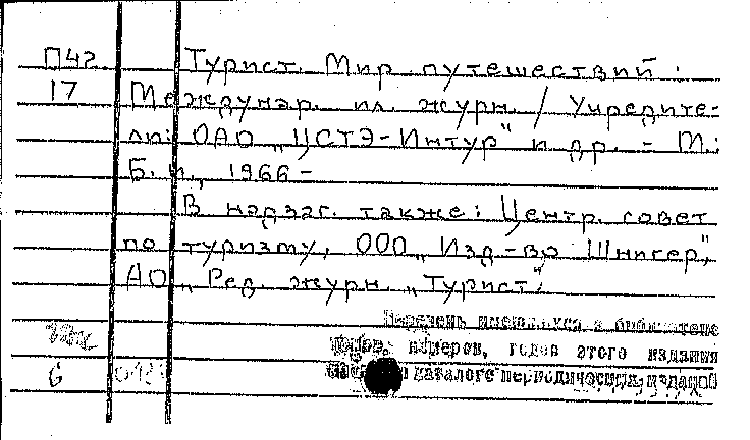 П42 Турист. Мир путешествий:
17 Междунар. ил. журн. / Учредите-
ли: ОАО „ЦСТЭ-Интур" и др. - М.:
Б. и., 1966 -
В надзаг. также: Центр. совет
по туризму, ООО „Изд-во Шнигер",
АО „Ред. журн. „Турист".
Перечень имеющихся в библиотеке
номеров, годов этого издания
каталоге периодических изданий
6